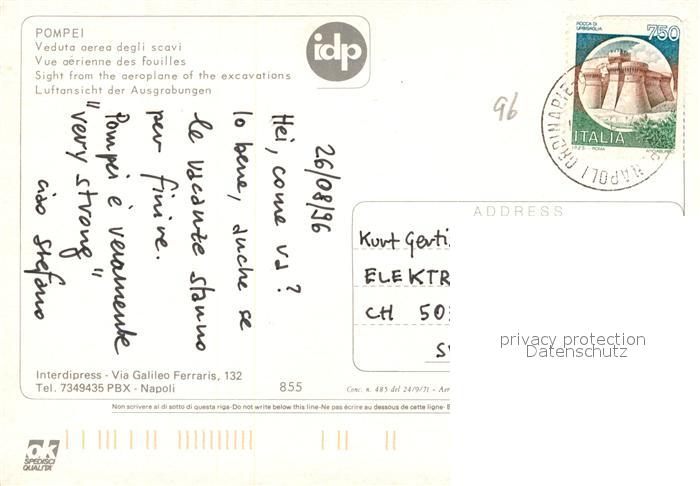 POMPEI
Veduta aerea degli scavi
Vue aérienne des fouilles
Sight from the aeroplane of the excavations
Luftansicht der Ausgrabungen
idp
ROCCA DI
URBISAGLIA
750
ITALIA
I.P.Z.S. - ROMA
NAPOLI ORDINARIE
96
26/08/96
Hei, come va?
Io bene, anche se
le vacanze stanno
per finire.
Pompei è veramente
"very strong"
ciao Stefano
ADDRESS
Kurt Gerti
ELEKTR
CH 503
S
privacy protection
Datenschutz
Interdipress - Via Galileo Ferraris, 132
Tel. 7349435 PBX - Napoli
855
Conc. n. 485 del 24/9/71 - Aer
Non scrivere al di sotto di questa riga-Do not write below this line-Ne pas écrire au dessous de cette ligne-
ok
SPEDISCI
QUALITÀ